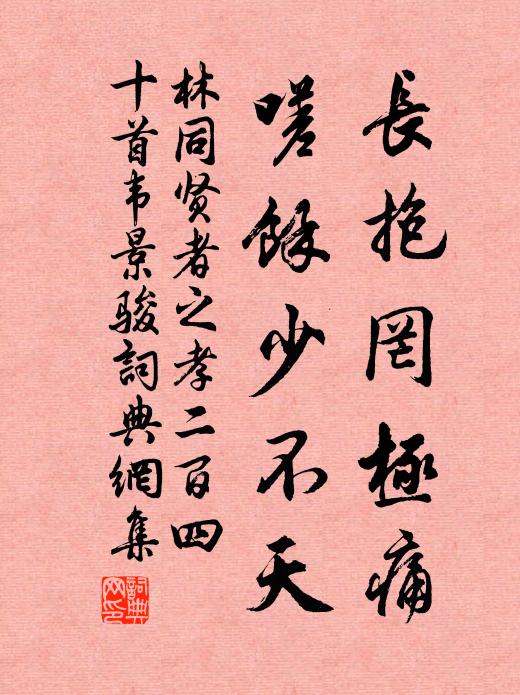 長抱罔極痛
嗟餘少不天
林同贤者之孝二百四
十首韦景骏詞典網集
詞典网印